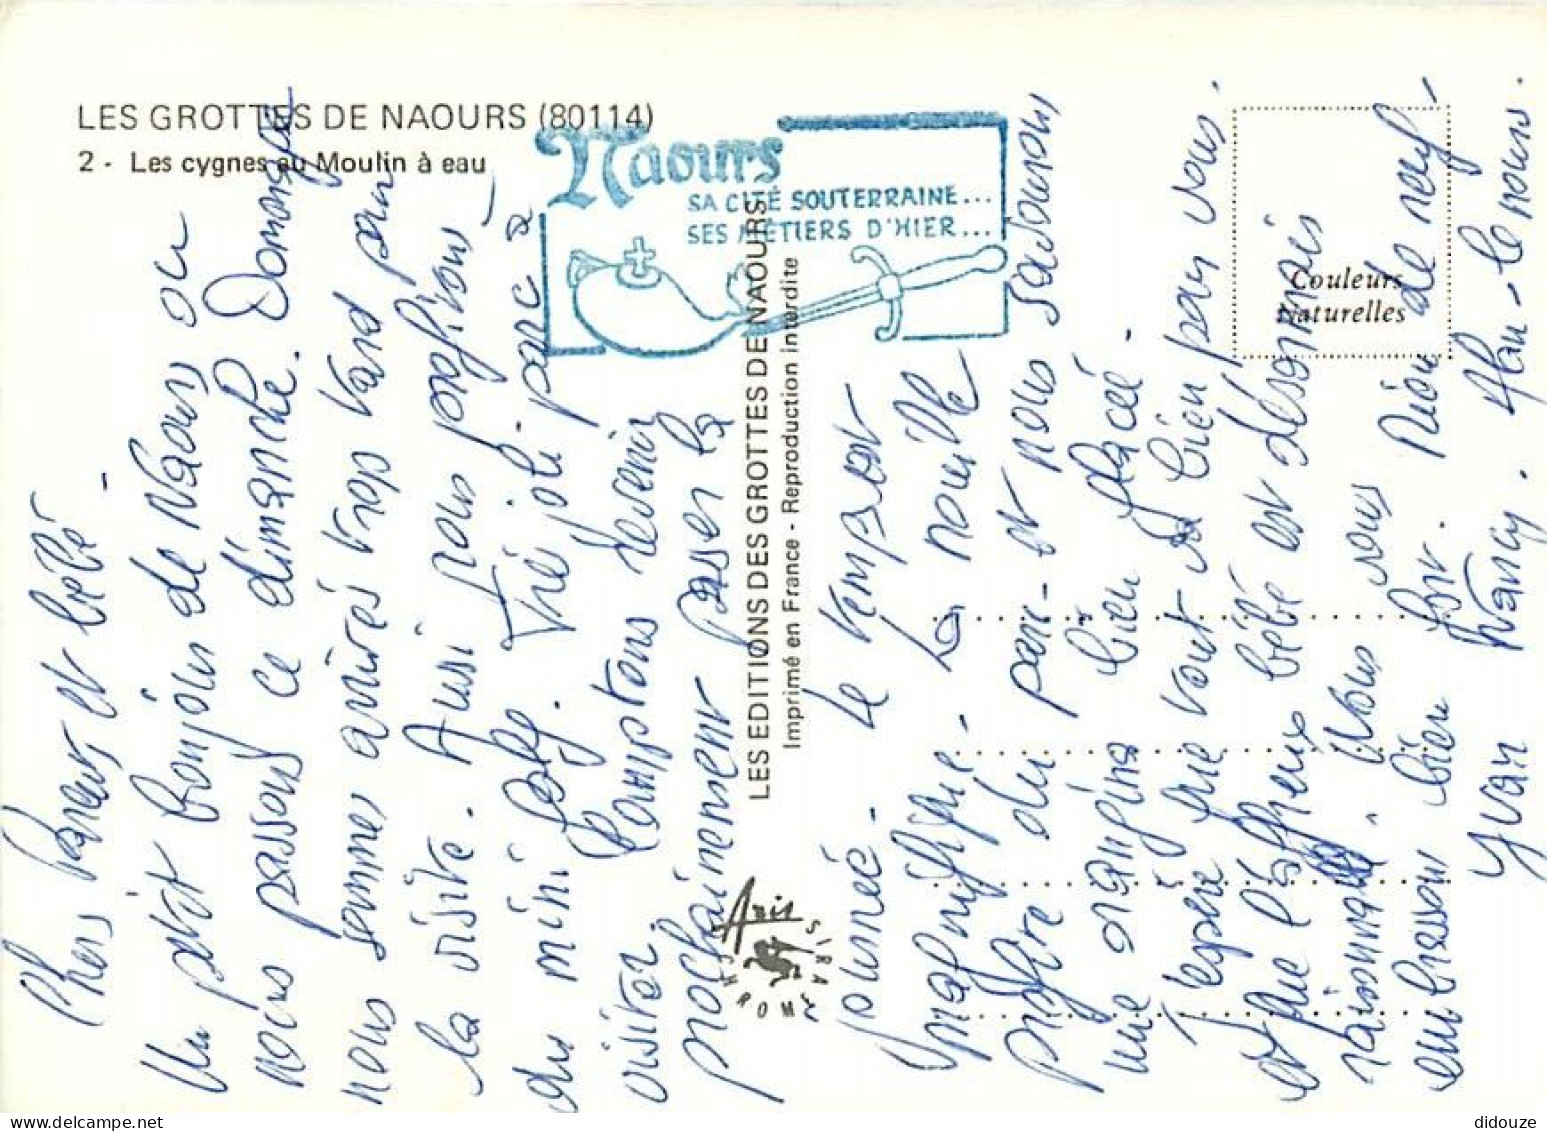 LES GROTTES DE NAOURS (80114)
2 - Les cygnes au Moulin à eau
Naours
SA CITÉ SOUTERRAINE...
SES MÉTIERS D'HIER...
LES EDITIONS DES GROTTES DE NAOURS
Imprimé en France - Reproduction interdite
Couleurs
Naturelles
Anis
SIRA
CHROME
Chers et bébé -
Un petit bonjour de Naours ou
nous passons ce dimanche. Dommage
nous sommes arrivés trop tard pour
la visite. Aussi nous profitons
du mini golf. Très joli parc à
visiter. Comptons revenir
prochainement passer la
journée. Le temps est
magnifique - La nouille
du parc - et nous savourons
une bien placée -
J'espère que tout va bien pour vous.
et que bébé est désormais
raisonnable. Nous vous
embrassons bien fort. Rien de neuf -
Yvan Nancy.
didouze | www.delcampe.net